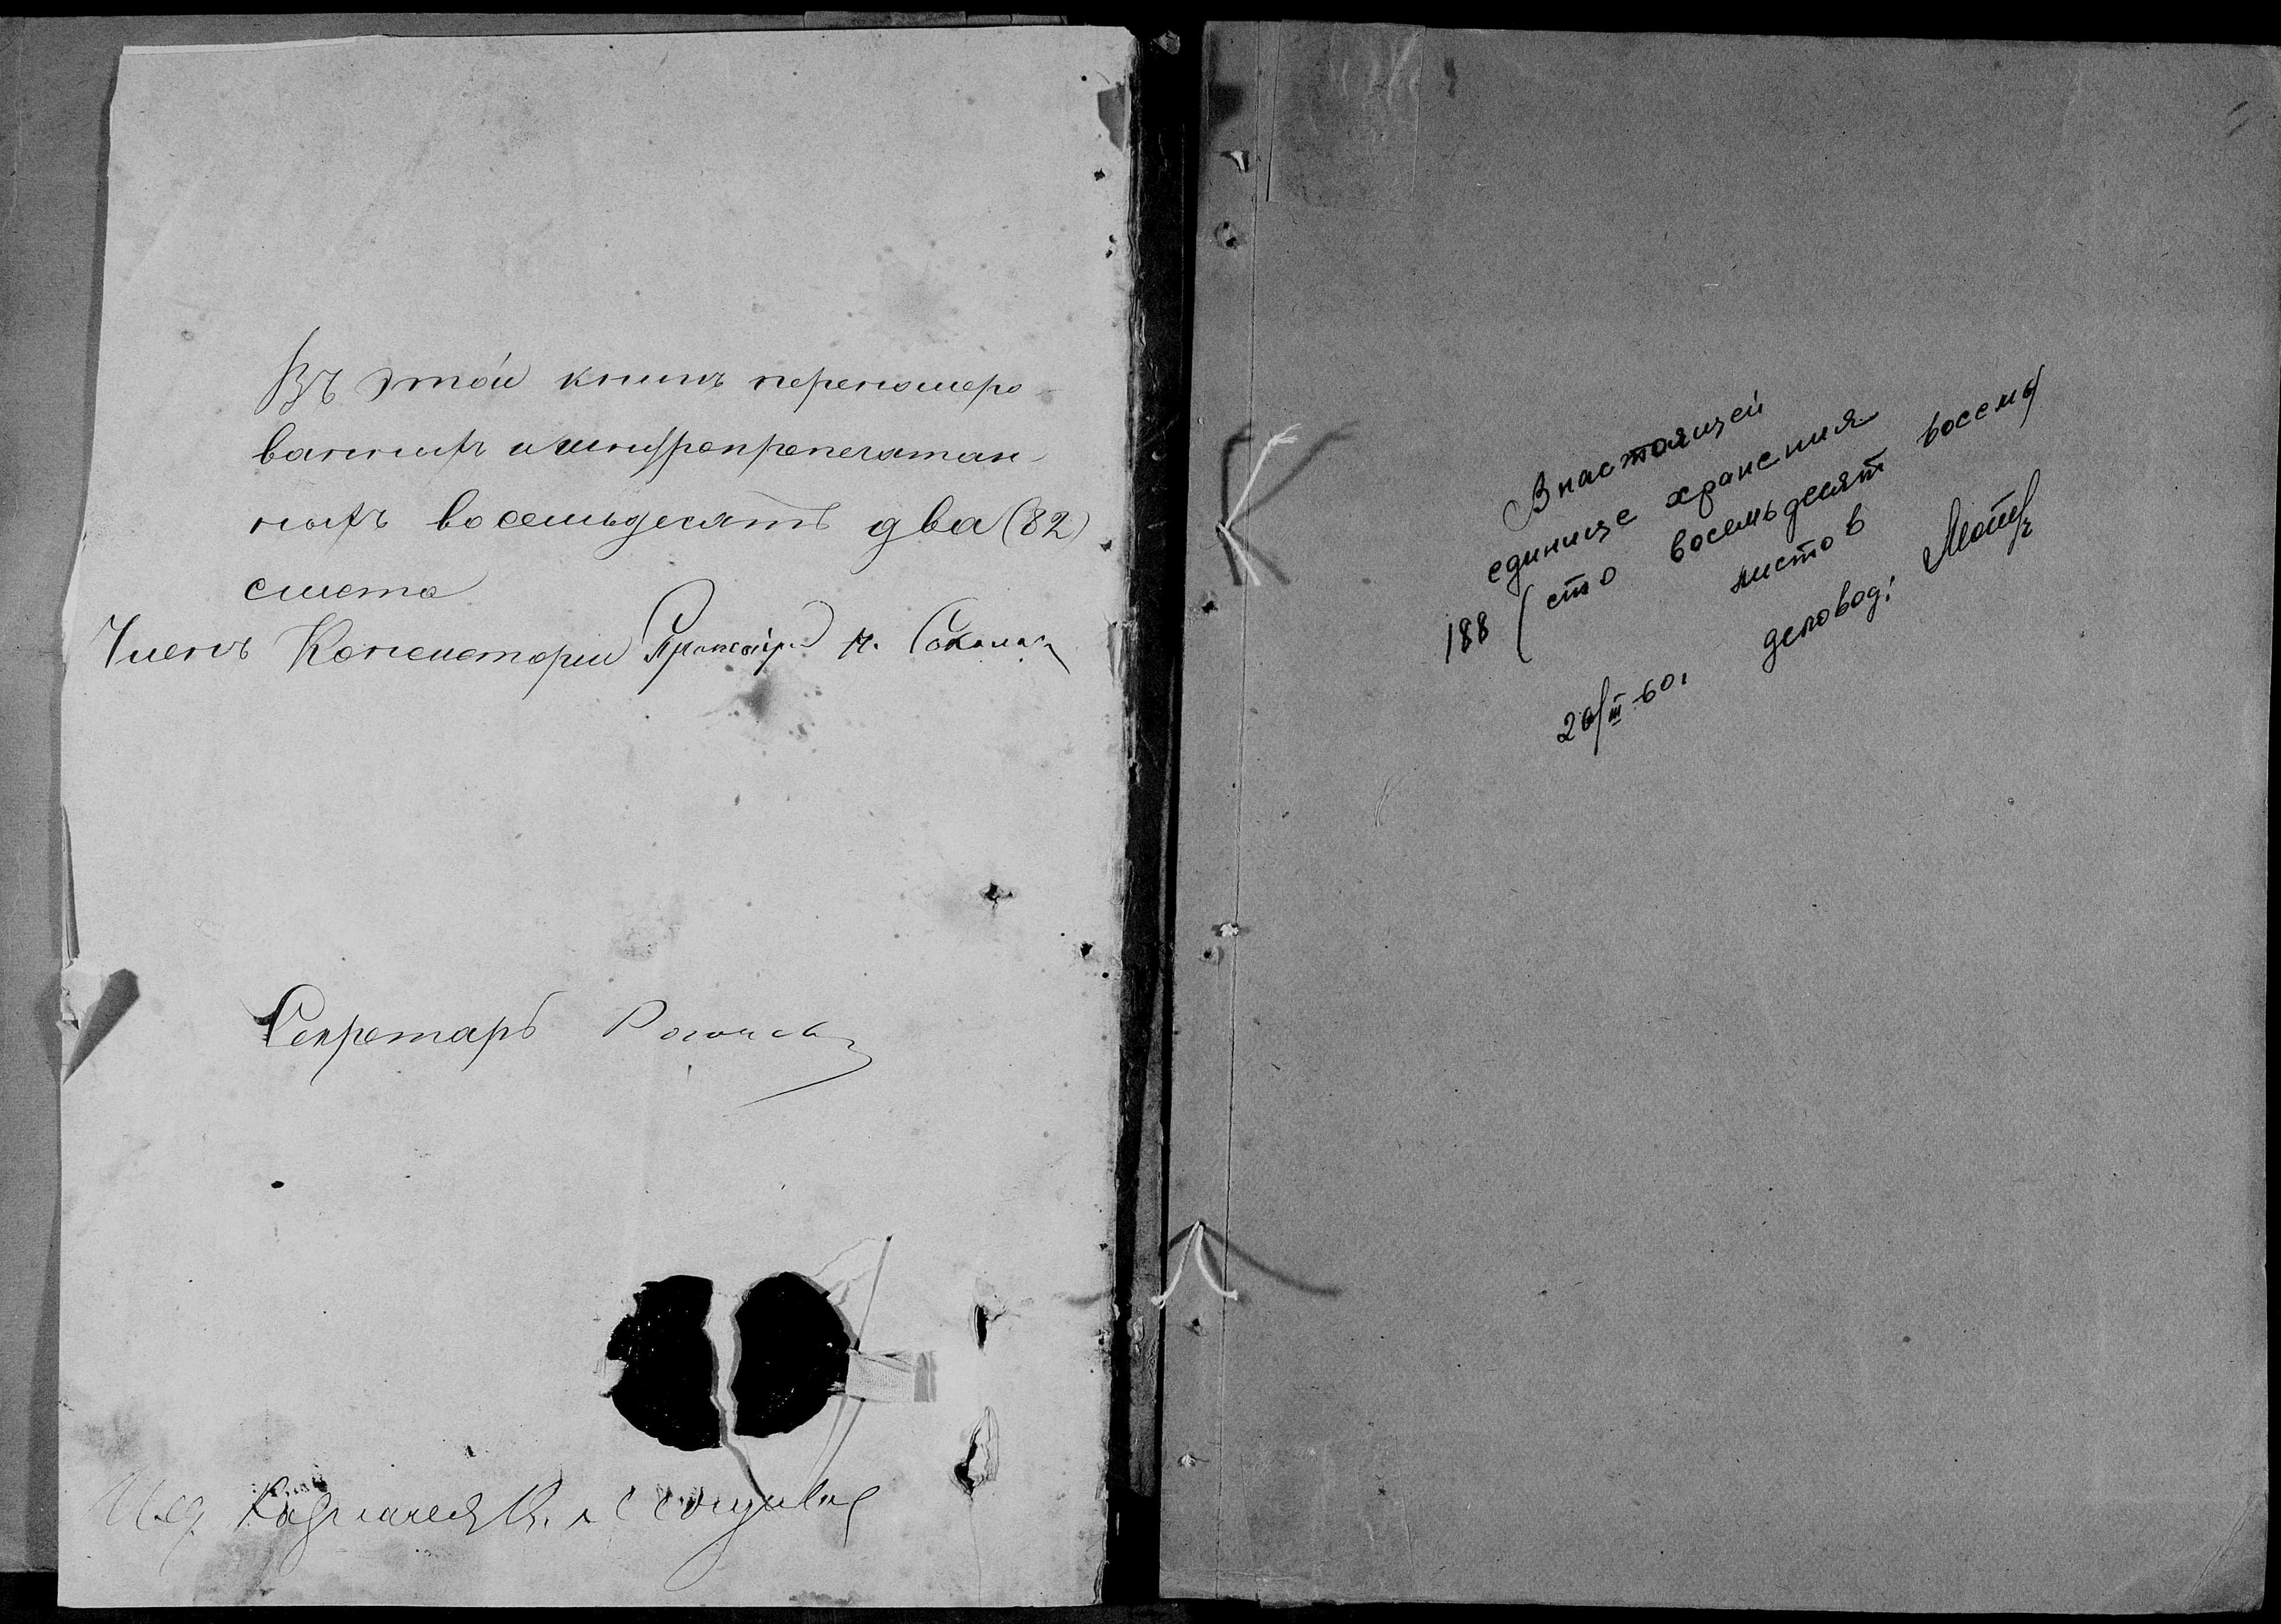 Въ этой книгѣ перенумеро-
ванныхъ и шнуропрепечатан-
ныхъ восемьдесятъ два (82)
листа
Членъ Консисторіи Протоіерей
Секретарь
И. д. Казначея
В настоящей
единице хранения
188 (сто восемьдесят восемь)
листов
20/III-60. деловод: